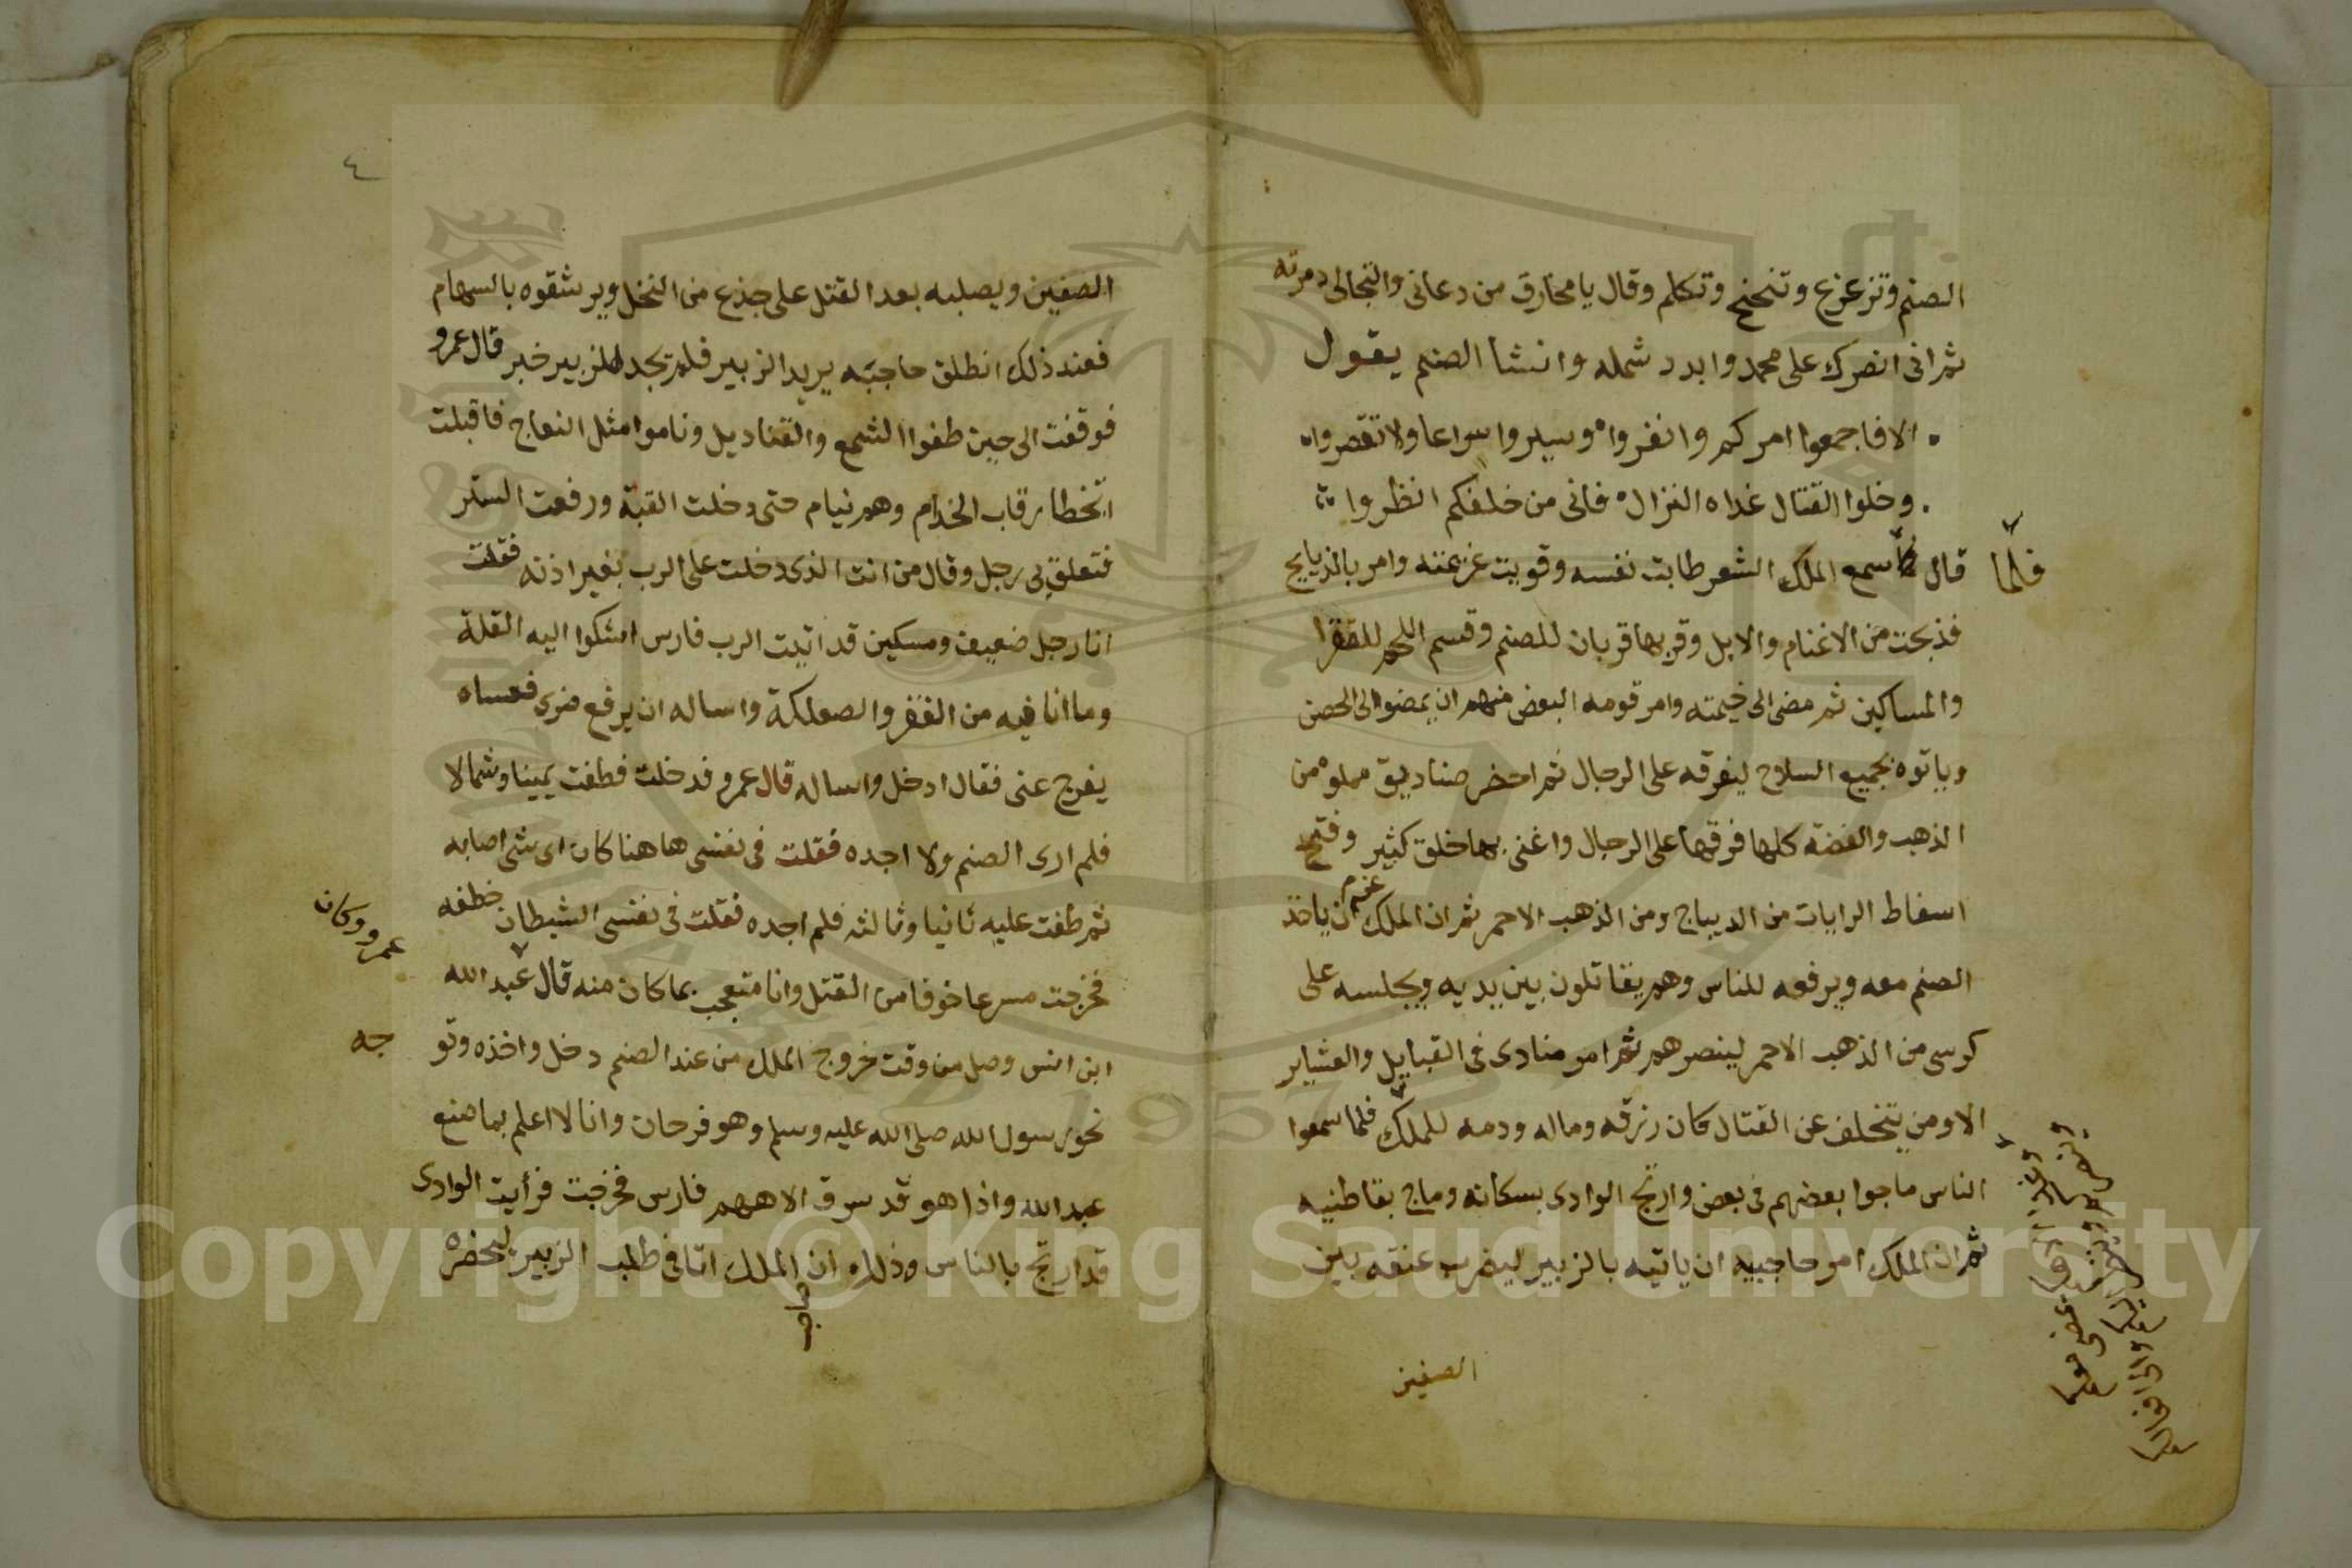 الصنم وتزعزع وتنحنح وتكلم وقال يا مخارق من دعانى والتجالى دمرته
ثم انى انصرك على محمد وابدد شمله وانشا الصنم يقول
الا فاجمعوا امركم وانفروا وسيروا سراعا ولا تقصروا
وخلوا القتال غداه النزال فانى من خلفكم انظروا
فلما
قال سمع الملك الشعر طابت نفسه وقويت عزيمته وامر بالذبايح
فذبحت من الاغنام والابل وقربها قربان للصنم وقسم اللحم للفقرا
والمساكين ثم مضى الى خيمته وامر قومه البعض منهم ان يمضوا الى الحصن
وياتوه بجميع السلاح ليفرقه على الرجال ثم احضر صناديق مملوه من
الذهب والفضة كلها فرقها على الرجال واغنى بها خلق كثير وفتح
اسفاط الرايات من الديباج ومن الذهب الاحمر ثم ان الملك عزم ان ياخذ
الصنم معه ويرفعه للناس وهم يقاتلون بين يديه ويجلسه على
كرسى من الذهب الاحمر لينصرهم ثم امر منادى فى القبايل والعشاير
الا ومن يتخلف عن القتال كان رزقه وماله ودمه للملك فلما سمعوا
الناس ماجوا بعضهم فى بعض وارتج الوادى بسكانه وماج بقاطنيه
ثم ان الملك امر حاجبيه ان ياتيه بالزبير ليضرب عنقه بين
الصفين
٤
الصفين ويصلبه بعد القتل على جذع من النخل ويرشقوه بالسهام
فعند ذلك انطلق حاجبه يريد الزبير فلم تجد للزبير خبر قال عمرو
فوقفت الى حين طفوا الشمع والقناديل وناموا مثل النعاج فاقبلت
اتخطا رقاب الخدام وهم نيام حتى دخلت القبة ورفعت الستر
فتعلق بى رجل وقال من انت الذى دخلت على الرب بغير اذنه فقلت
انا رجل ضعيف ومسكين قد اتيت الرب فارس اشكوا اليه القلة
وما انا فيه من الفقر والصعلكة واساله ان يرفع ضرى فعساه
يفرج عنى فقال ادخل واساله قال عمرو فدخلت فطفت يمينا وشمالا
فلم ارى الصنم ولا اجده فقلت فى نفسى هاهنا كان اى شى اصابه
ثم طفت عليه ثانيا وثالثه فلم اجده فقلت فى نفسى الشيطان خطفه
عمرو وكان
فخرجت مسرعا خوفا من القتل وانا متعجب بما كان منه قال عبد الله
ابن انس وصل من وقت خروج الملك من عند الصنم دخل واخذه وتو
جه
نحو رسول الله صلى الله عليه وسلم وهو فرحان وانا لا اعلم بما صنع
عبد الله واذا هو قد سرق الاههم فارس فخرجت فرأيت الوادى
قد ارتج بالناس وذلك ان الملك اتا فى طلب الزبير ليحضره
حاجب
Copyright © King Saud University
1957